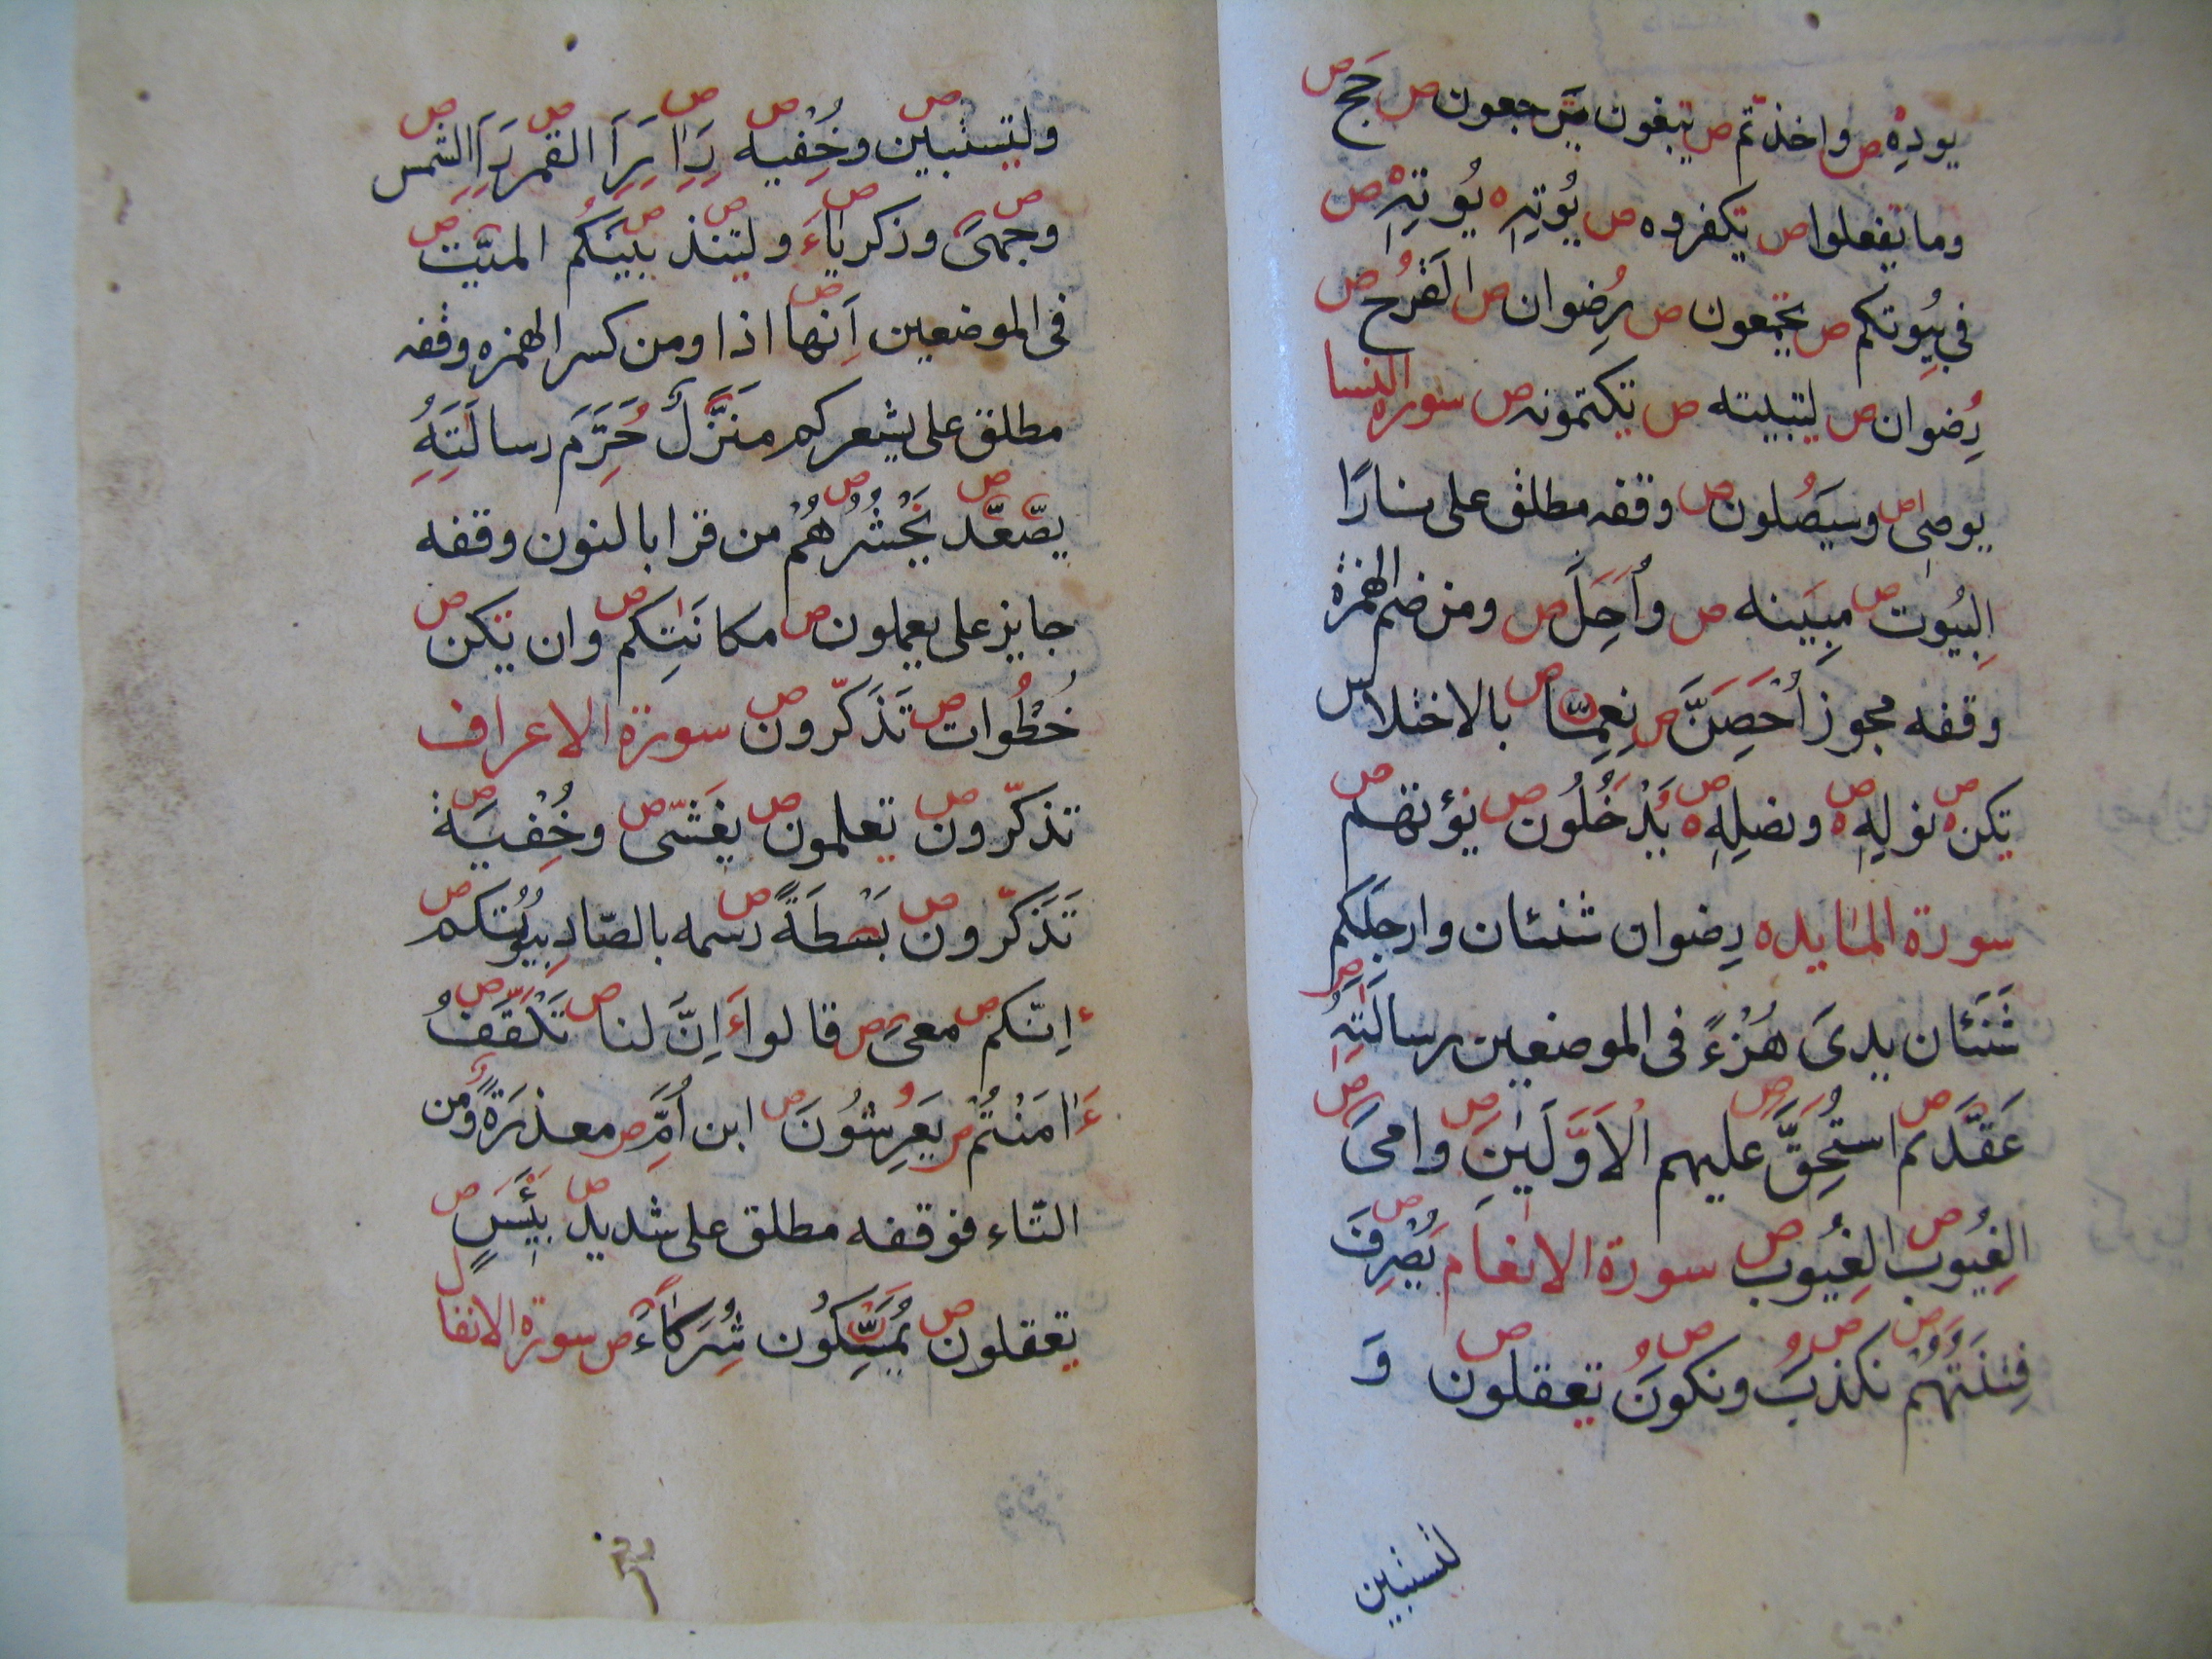 يوده ص واخذتم ص يبغون يرجعون ص حج ص
وما يفعلوا ص يكفروه ص يؤته يؤته ص
في بيوتكم ص يجمعون ص رضوان ص القرح ص
رضوان ص ليبيننه ص يكتمونه ص سورة النسا
يوصى ص وسيصلون ص وقفه مطلق على نارًا
البيوت ص مبينه ص وأحل ص ومن ضم الهمزة
وقفه مجوز أحصن ص نعما ص بالاختلاس
يكن ص نوله ص ونصله ص يدخلون ص يؤتهم ص
سورة المايده رضوان شنئان وارجلكم
شنئان يدى هزءً في الموضعين رسالته
عقدتم ص استحق عليهم الاولين ص وامى ص
الغيوب ص الغيوب ص سورة الانعام يصرف ص
فتنتهم ص نكذب ص ونكون ص تعقلون ص و
لتستبين
ولتستبين ص وخفيه ص رءا ص رءا القمر ص رءا الشمس ص
وجهى ص وزكرياء ص ولينذر ص بينكم ص الميت ص
في الموضعين أنها ص اذا ومن كسر الهمزه وقفه
مطلق على يشعركم منزل حرم رسالته
يصعد ص نحشرهم ص من قرا بالنون وقفه
جايز على يعملون ص مكانتكم ص وان يكن ص
خطوات ص تذكرون ص سورة الاعراف
تذكرون ص تعلمون ص يغشى ص وخفية ص
تذكرون ص بسطة ص رسمه بالصاد بيوتكم ص
ءإنكم ص معى ص قالوا ءإن لنا ص تلقف ص
ءامنتم ص يعرشون ص ابن أم ص معذرة ومن
التاء فوقفه مطلق على شديد ص بئس ص
تعقلون ص يمسكون شركاء ص سورة الانفال